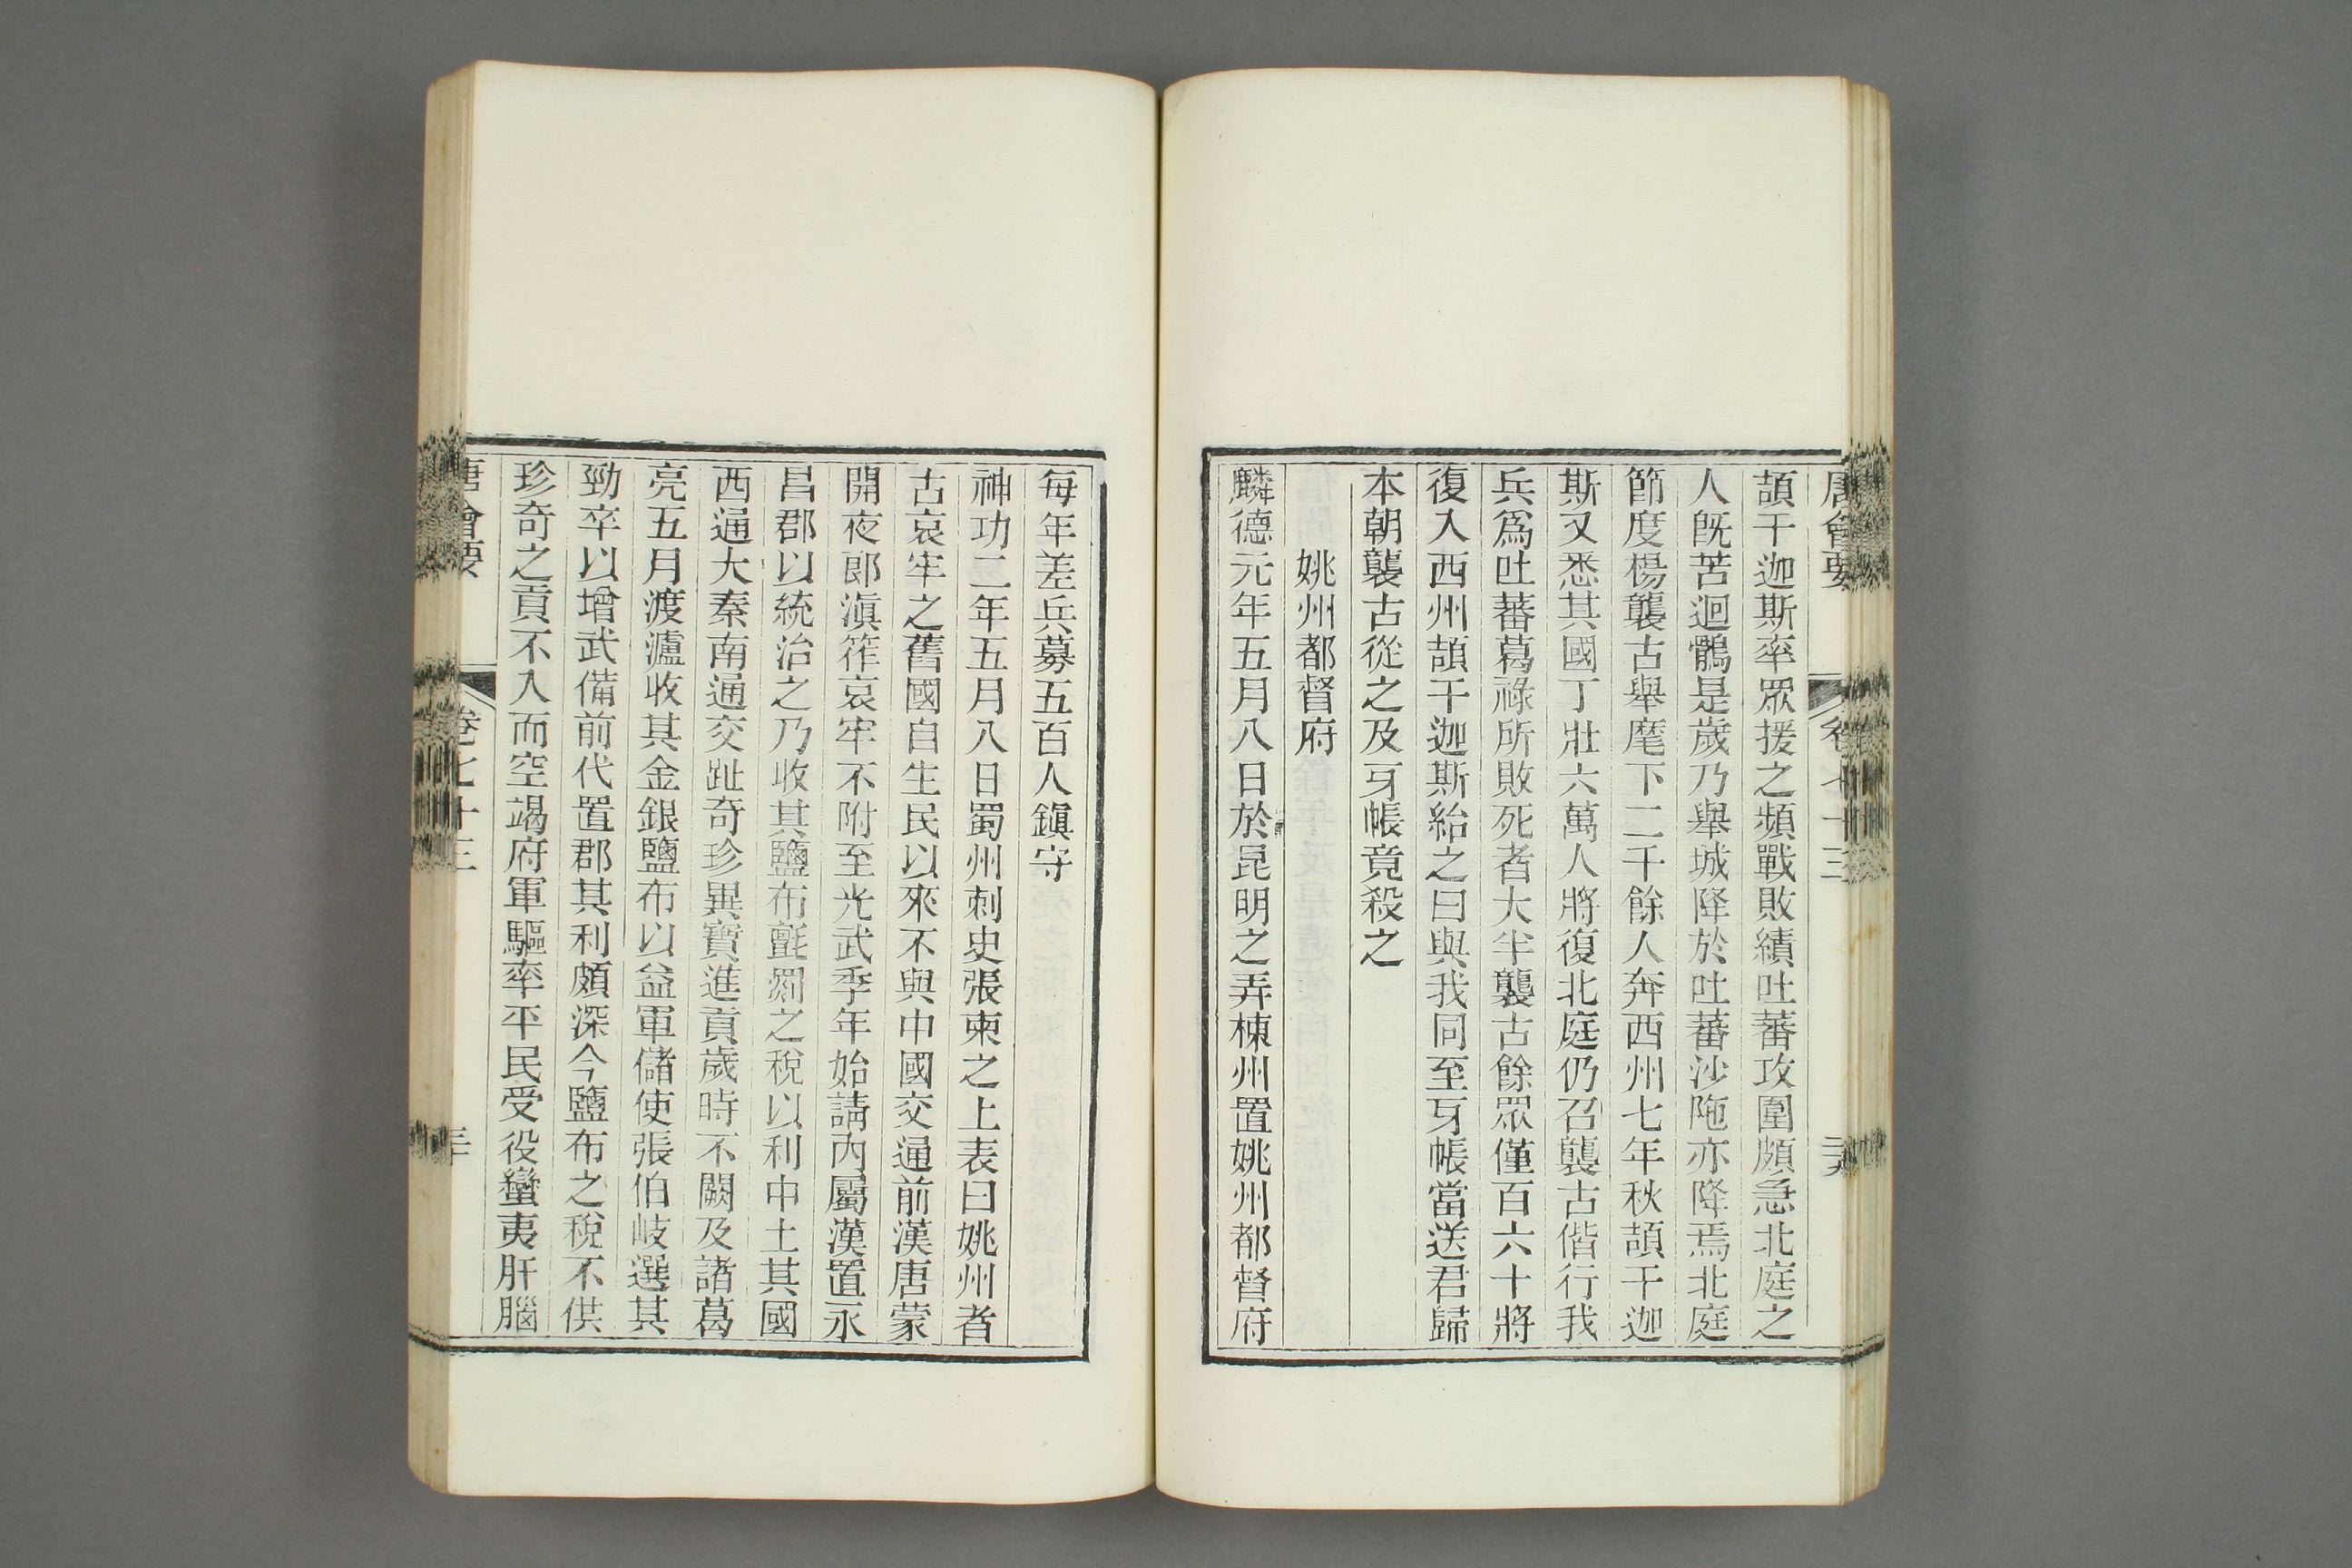 唐會要 卷七十三 二十九
頡干迦斯率眾援之頻戰敗績吐蕃攻圍頗急北庭之
人旣苦迴鶻是歲乃舉城降於吐蕃沙陁亦降焉北庭
節度楊襲古舉麾下二千餘人奔西州七年秋頡干迦
斯又悉其國丁壯六萬人將復北庭仍召襲古偕行我
兵爲吐蕃葛祿所敗死者大半襲古餘眾僅百六十將
復入西州頡干迦斯紿之曰與我同至牙帳當送君歸
本朝襲古從之及牙帳竟殺之
姚州都督府
麟德元年五月八日於昆明之弄棟州置姚州都督府
每年差兵募五百人鎭守
神功二年五月八日蜀州刺史張柬之上表曰姚州者
古哀牢之舊國自生民以來不與中國交通前漢唐蒙
開夜郎滇筰哀牢不附至光武季年始請內屬漢置永
昌郡以統治之乃收其鹽布氈罽之稅以利中土其國
西通大秦南通交趾奇珍異寶進貢歲時不闕及諸葛
亮五月渡瀘收其金銀鹽布以益軍儲使張伯岐選其
勁卒以增武備前代置郡其利頗深今鹽布之稅不供
珍奇之貢不入而空竭府軍驅率平民受役蠻夷肝腦
唐會要 卷七十三 三十